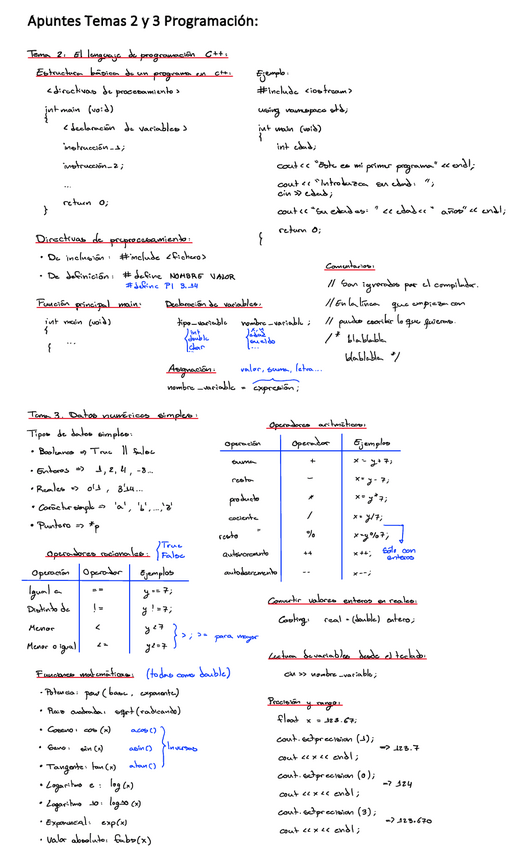 Apuntes Temas 2 y 3 Programación:
Tema 2: El lenguaje de programación C++:
Estructura básica de un programa en C++:
<directivas de procesamiento>
int main (void)
{
<declaración de variables>
instrucción_1;
instrucción_2;
...
return 0;
}
Ejemplo:
#include <iostream>
using namespace std;
int main (void)
{
int edad;
cout << "Este es mi primer programa" << endl;
cout << "Introduzca su edad: ";
cin >> edad;
cout << "Su edad es: " << edad << " años" << endl;
return 0;
}
Directivas de preprocesamiento:
• De inclusión: #include <fichero>
• De definición: #define NOMBRE VALOR
#define PI 3.14
Comentarios:
// Son ignorados por el compilador.
// En la línea que empieza con
// puedes escribir lo que quieras.
/* blablabla
blablabla */
Función principal main:
int main (void)
{
...
}
Declaración de variables:
tipo_variable nombre_variable ;
int
double
char
edad
sueldo
...
Asignación: valor, suma, letra...
nombre_variable = expresión;
Tema 3. Datos numéricos simples:
Tipos de datos simples:
• Booleanos => True || False
• Enteros => 1, 2, 4, -3...
• Reales => 0'1, 3'14...
• Carácter simple => 'a', 'b', ..., 'z'
• Puntero => *p
Operadores aritméticos:
Operación Operador Ejemplos
suma + x = y+7;
resta - x = y-7;
producto * x = y*7;
cociente / x = y/7;
resto " % x=y%7; Sólo con enteros
autoincremento ++ x++;
autodecremento -- x--;
Operadores racionales: True
False
Operación Operador Ejemplos
Igual a == y == 7;
Distinto de != y != 7;
Menor < y<7
Menor o igual <= y<=7
> ; >= para mayor
Convertir valores enteros en reales:
Casting: real = (double) entero;
Lectura de variables desde el teclado:
cin >> nombre_variable;
Funciones matemáticas: (todas como double)
• Potencia: pow (base, exponente)
• Raíz cuadrada: sqrt (radicando)
• Coseno: cos (x) acos()
• Seno: sin (x) asin()
• Tangente: tan (x) atan()
Inversas
• Logaritmo e: log (x)
• Logaritmo 10: log10 (x)
• Exponencial: exp(x)
• Valor absoluto: fabs(x)
Precisión y rango:
float x = 123.67;
cout.setprecision (1);
cout << x << endl;
=> 123.7
cout.setprecision (0);
cout << x << endl;
=> 124
cout.setprecision (3);
cout << x << endl;
=> 123.670